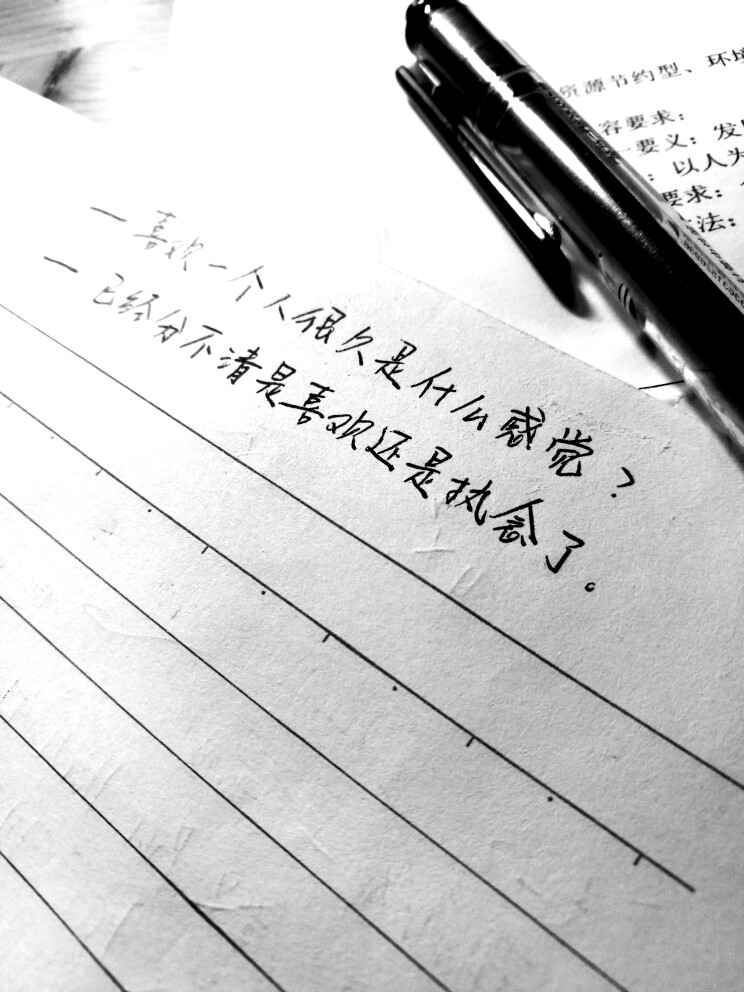 资源节约型、环境
容要求：
一要义：发
：以人为
要求：
方法：
一 喜欢一个人很久是什么感觉？
一 已经分不清是喜欢还是执念了。